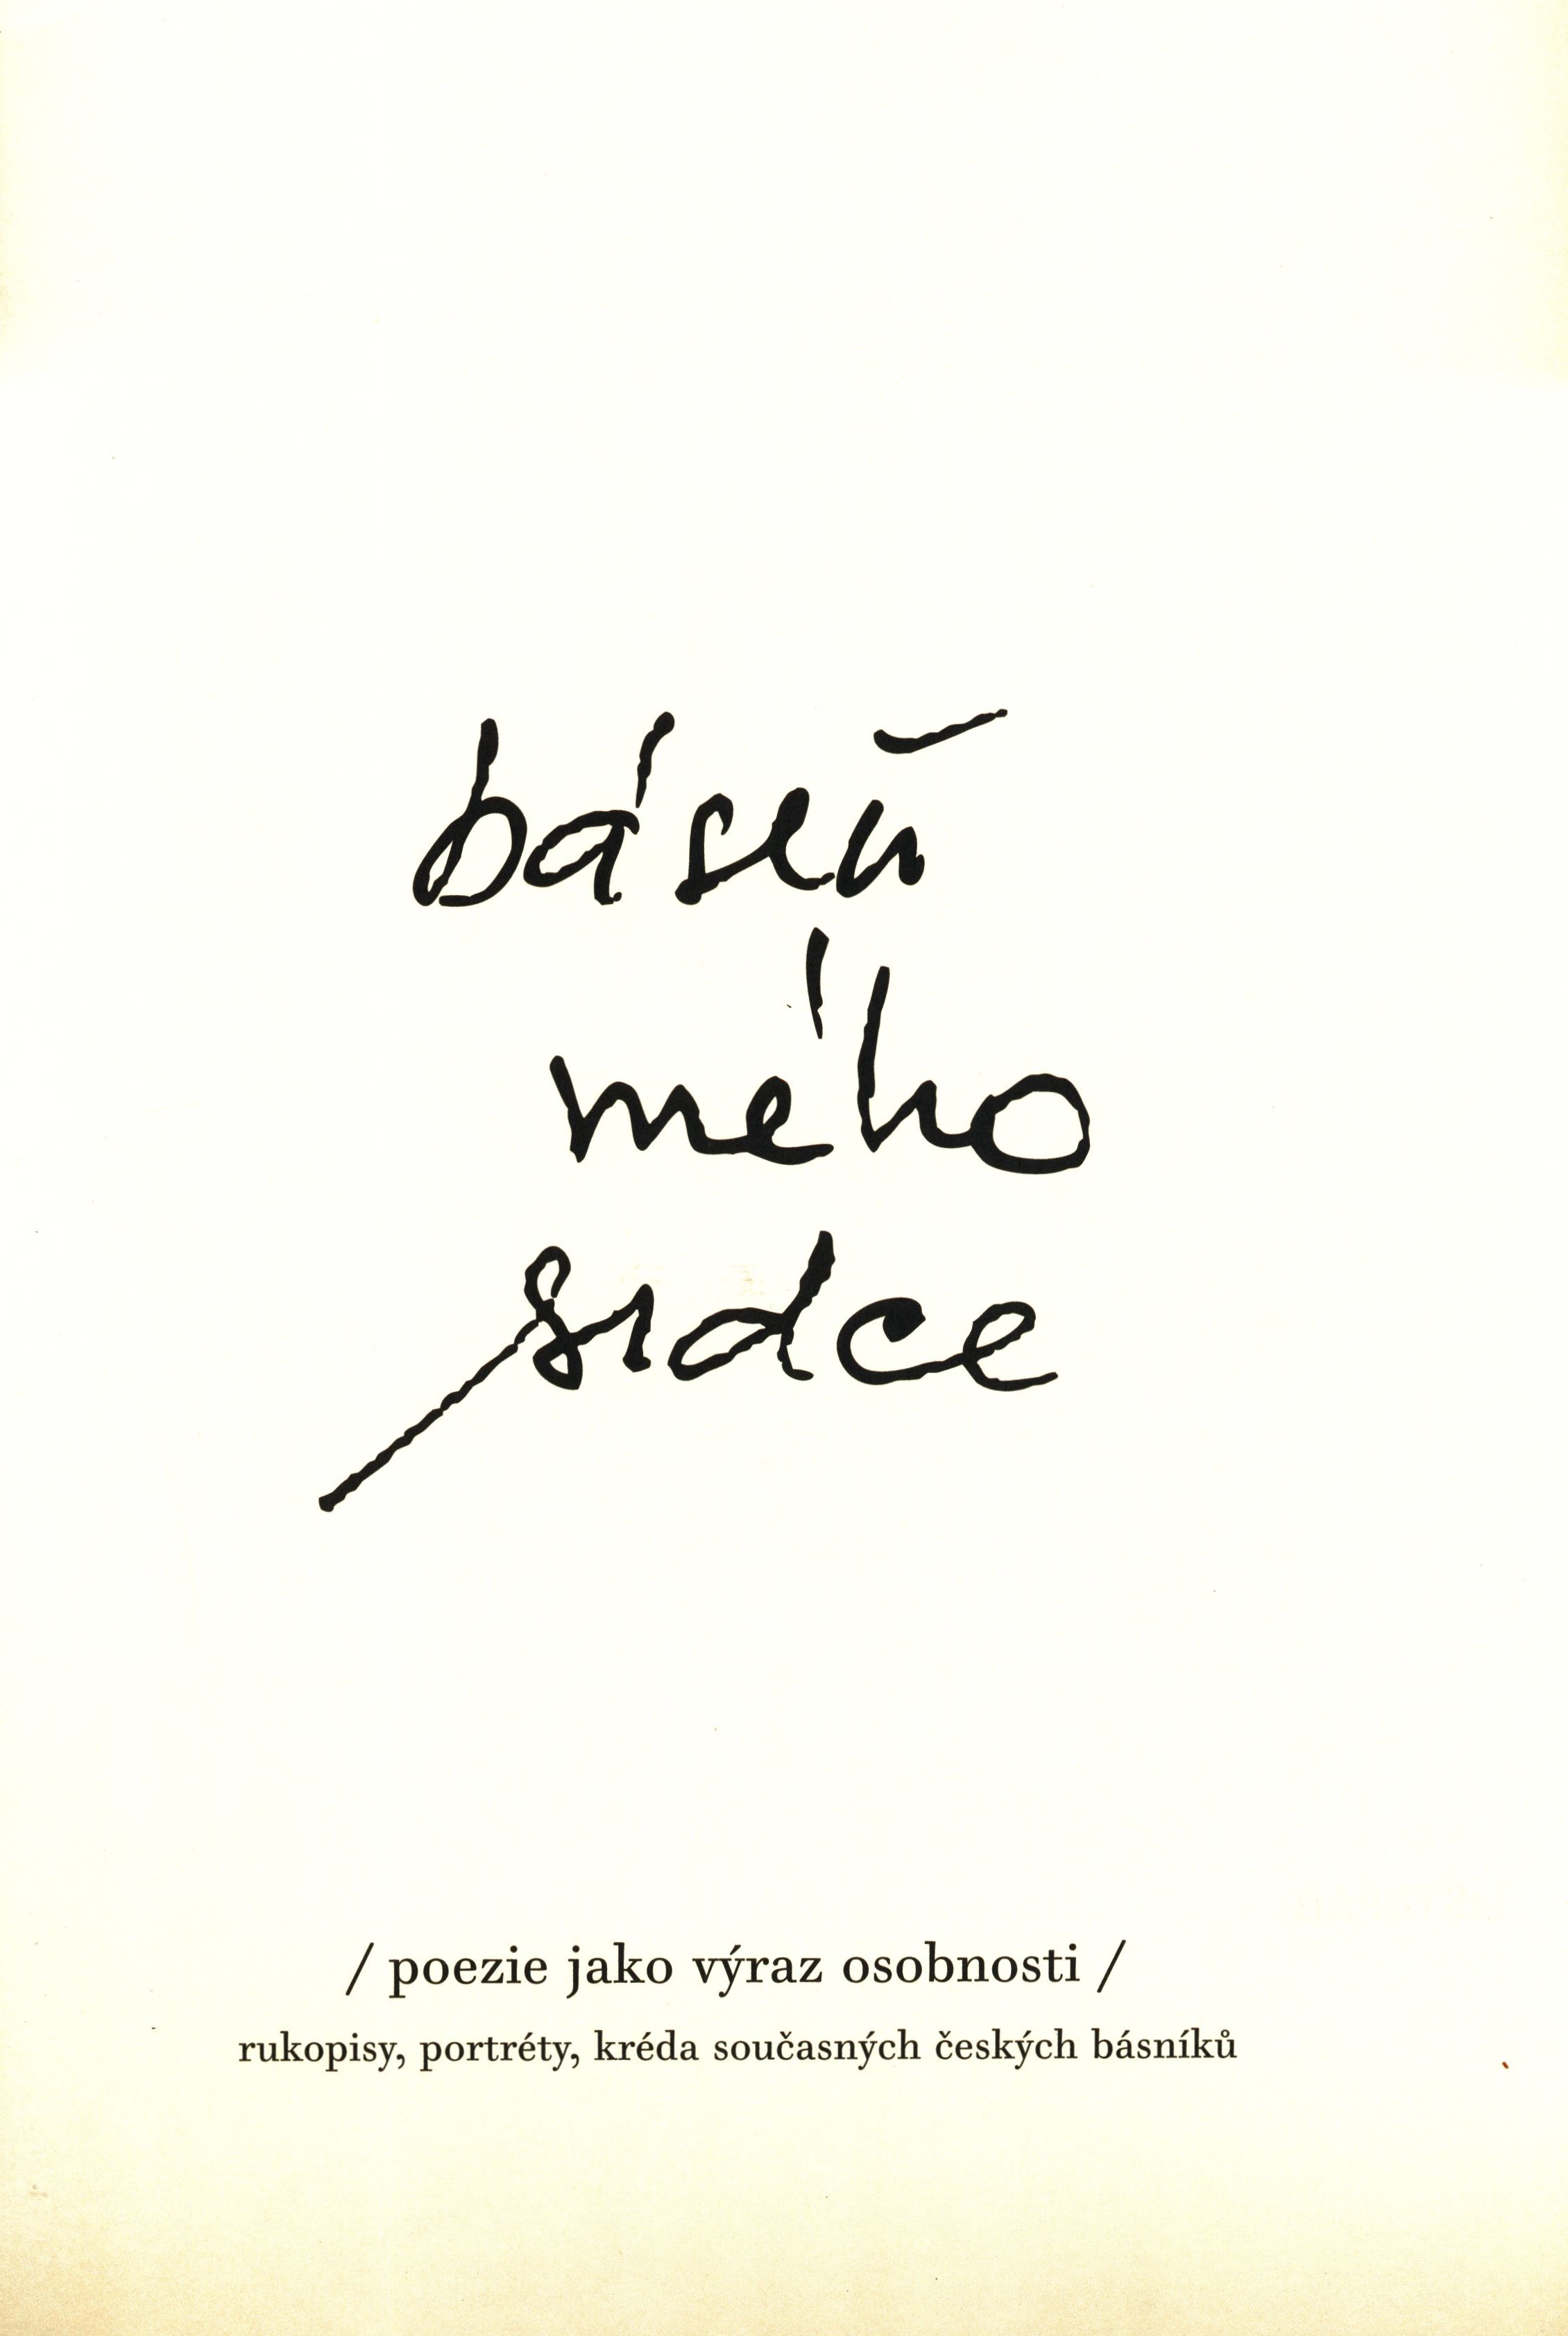 báseň
mého
srdce
/ poezie jako výraz osobnosti /
rukopisy, portréty, kréda současných českých básníků